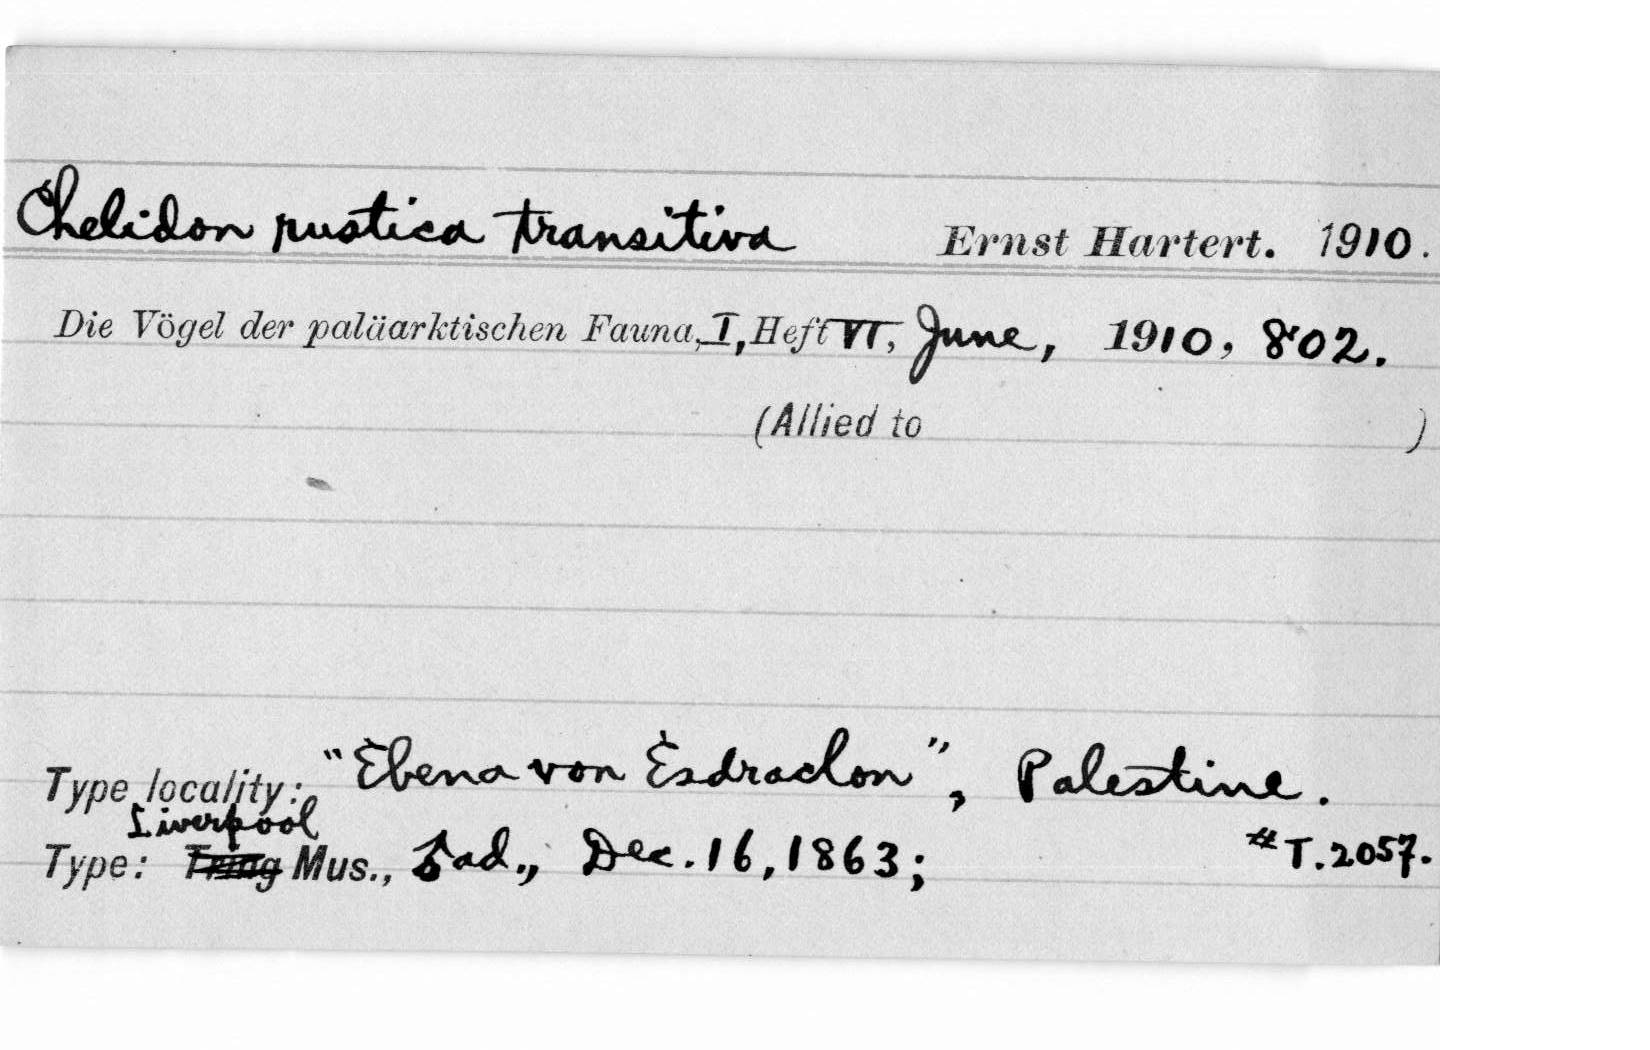 Chelidon rustica transitiva Ernst Hartert. 1910.
Die Vögel der paläarktischen Fauna, I, Heft VI, June, 1910, 802.
(Allied to )
Type locality: "Ebena von Esdraelon", Palestine.
Liverpool
Type: Tring Mus., ♂ ad., Dec. 16, 1863; #T.2057.